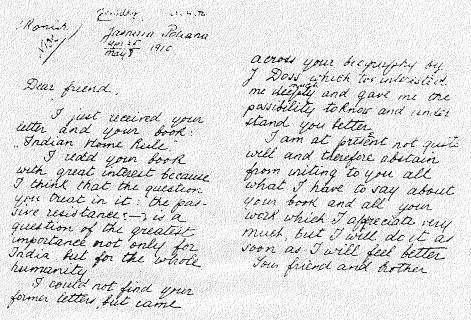 Yasnaya Poliana
1910
Dear friend.
I just received your
letter and your book:
"Indian Home Rule"
I read your book
with great interest because
I think that the question
you treat in it: the pas-
sive resistance — is a
question of the greatest
importance not only for
India but for the whole
humanity
I could not find your
former letters, but came
across your biography by
J Doss which interested
me deeply and gave me the
possibility to know and under
stand you better.
I am at present not quite
well and therefore abstain
from writing to you all
what I have to say about
your book and all your
work which I appreciate very
much, but I will do it as
soon as I will feel better
Your friend and brother